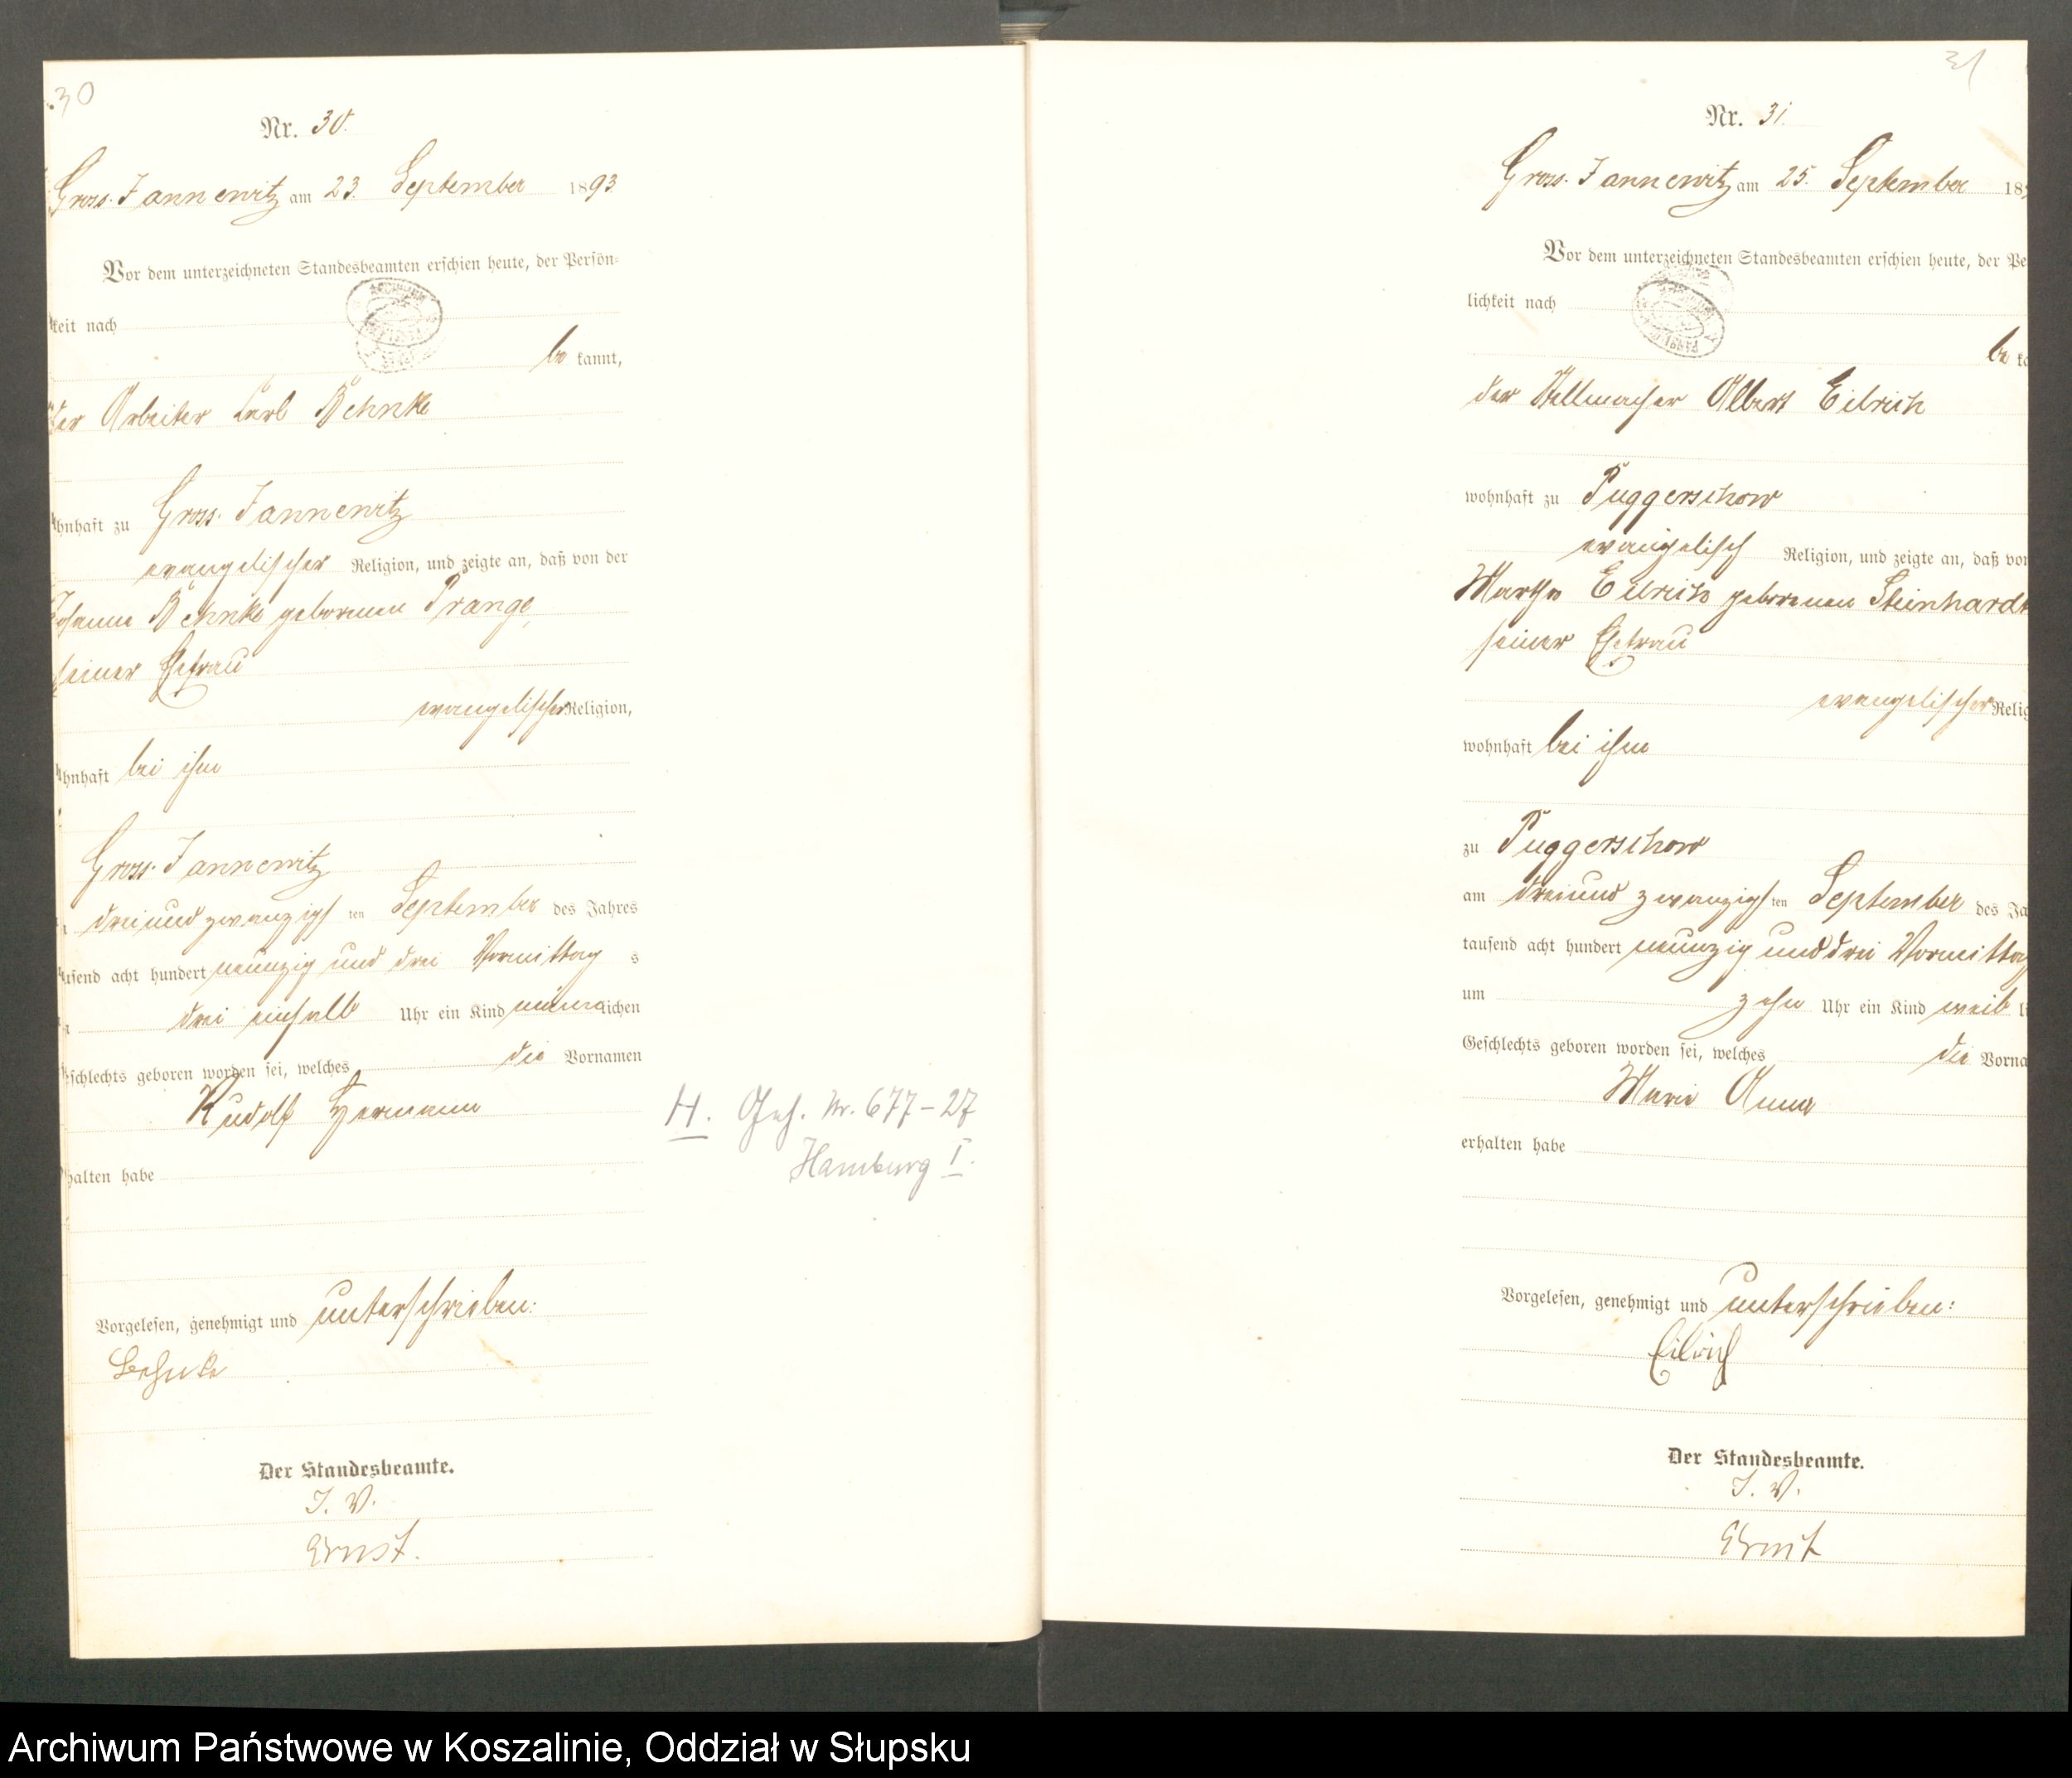 30
Nr. 30.
Gross-Jannewitz am 23. September 1893
Vor dem unterzeichneten Standesbeamten erschien heute, der Persön=
keit nach
be kannt,
der Arbeiter Carl Behnke
hnhaft zu Gross-Jannewitz
evangelischer Religion, und zeigte an, daß von der
Johanne Behnke geborenen Prange,
seiner Ehefrau
evangelischer Religion,
hnhaft bei ihm
Gross-Jannewitz
dreiundzwanzigsten September des Jahres
usend acht hundert neunzig und drei Vormittags
drei einhalb Uhr ein Kind männlichen
schlechts geboren worden sei, welches die Vornamen
Rudolf Hermann
halten habe
Vorgelesen, genehmigt und unterschrieben:
Behnke
Der Standesbeamte.
J. V.
Ernst.
H. Geh. Nr. 677-27
Hamburg I.
31
Nr. 31.
Gross-Jannewitz am 25. September 18
Vor dem unterzeichneten Standesbeamten erschien heute, der Pe
lichkeit nach
be ka
der Stellmacher Albert Eilrich
wohnhaft zu Puggerschow
evangelisch Religion, und zeigte an, daß von
Martha Eilrich geborenen Steinhardt
seiner Ehefrau
evangelischer Relig
wohnhaft bei ihm
zu Puggerschow
am dreiundzwanzigsten September des Ja
tausend acht hundert neunzig und drei Vormittag
um zehn Uhr ein Kind weibli
Geschlechts geboren worden sei, welches die Vorna
Marie Anna
erhalten habe
Vorgelesen, genehmigt und unterschrieben:
Eilrich
Der Standesbeamte.
J. V.
Ernst
Archiwum Państwowe w Koszalinie, Oddział w Słupsku